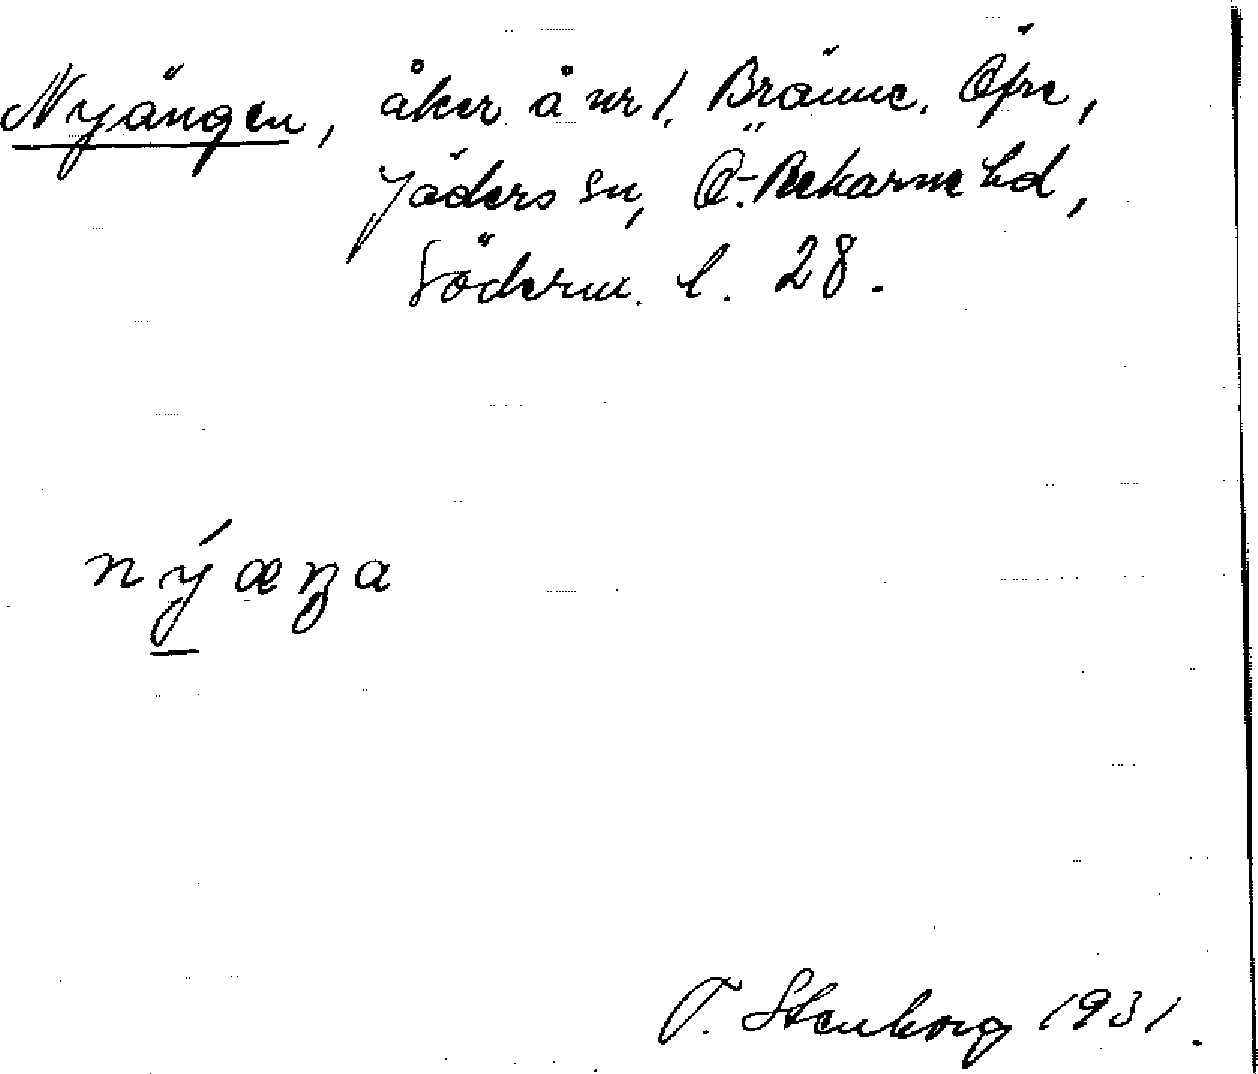 Nyängen, åker å nr 1. Bränne. Öfre,
Jäders sn, Ö. Rekarne hd,
Söderm. l. 28.
nýæŋa
T. Stenborg 1931.